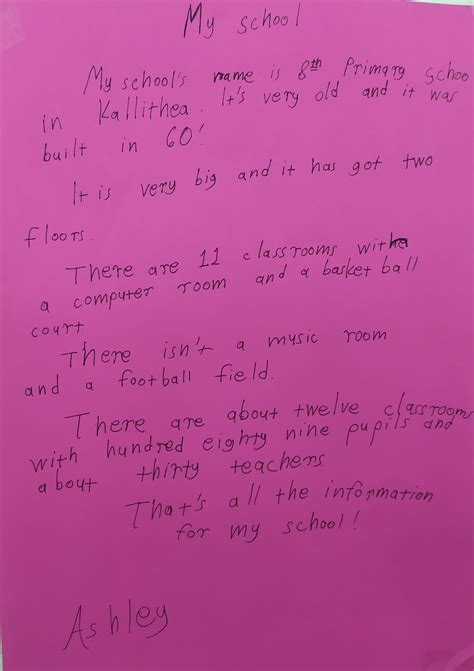 My school
My school's name is 8th Primary Schoo
in Kallithea. It's very old and it was
built in 60'
It is very big and it has got two
floors.
There are 11 classrooms with
a computer room and a basket ball
court
There isn't a music room
and a football field.
There are about twelve classrooms
with hundred eighty nine pupils and
about thirty teachers
That's all the information
for my school!
Ashley